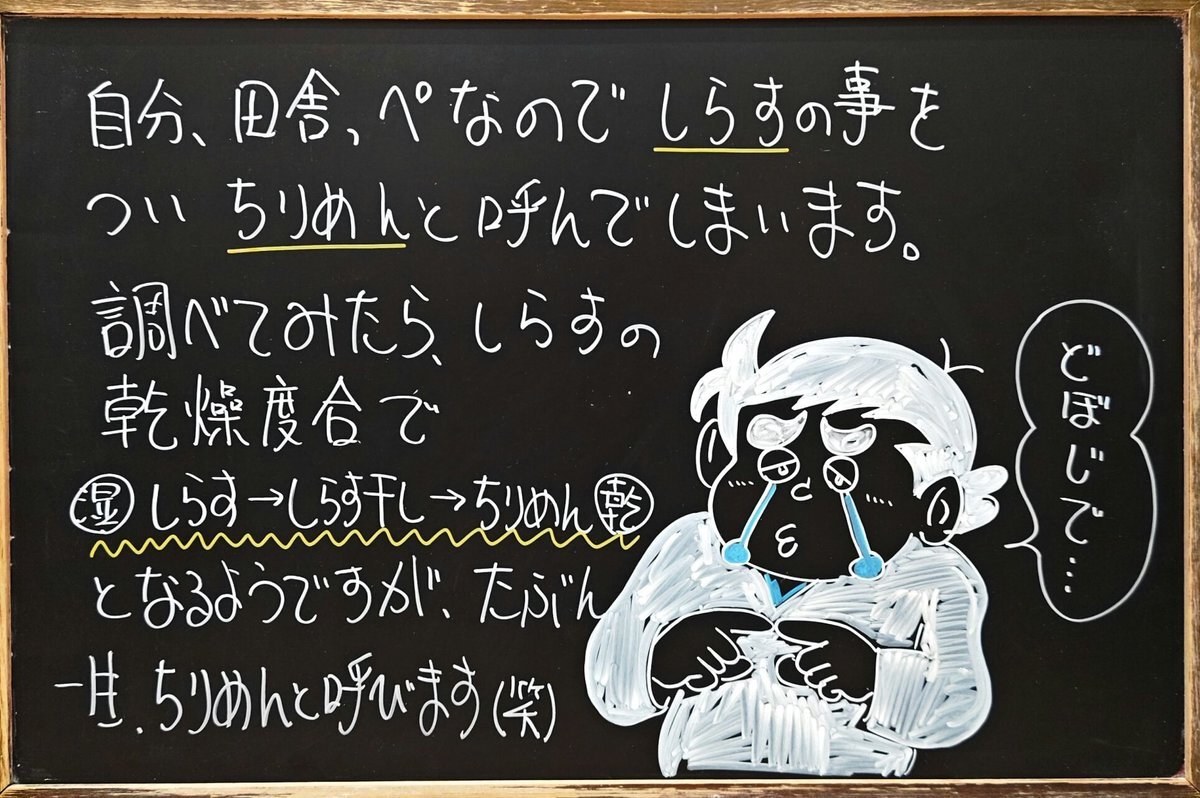 自分、田舎っぺなので しらすの事を
つい ちりめんと呼んでしまいます。
調べてみたら、しらすの
乾燥度合で
湿 しらす→しらす干し→ちりめん 乾
となるようですが、たぶん
一生、ちりめんと呼びます(笑)
どぼじで…